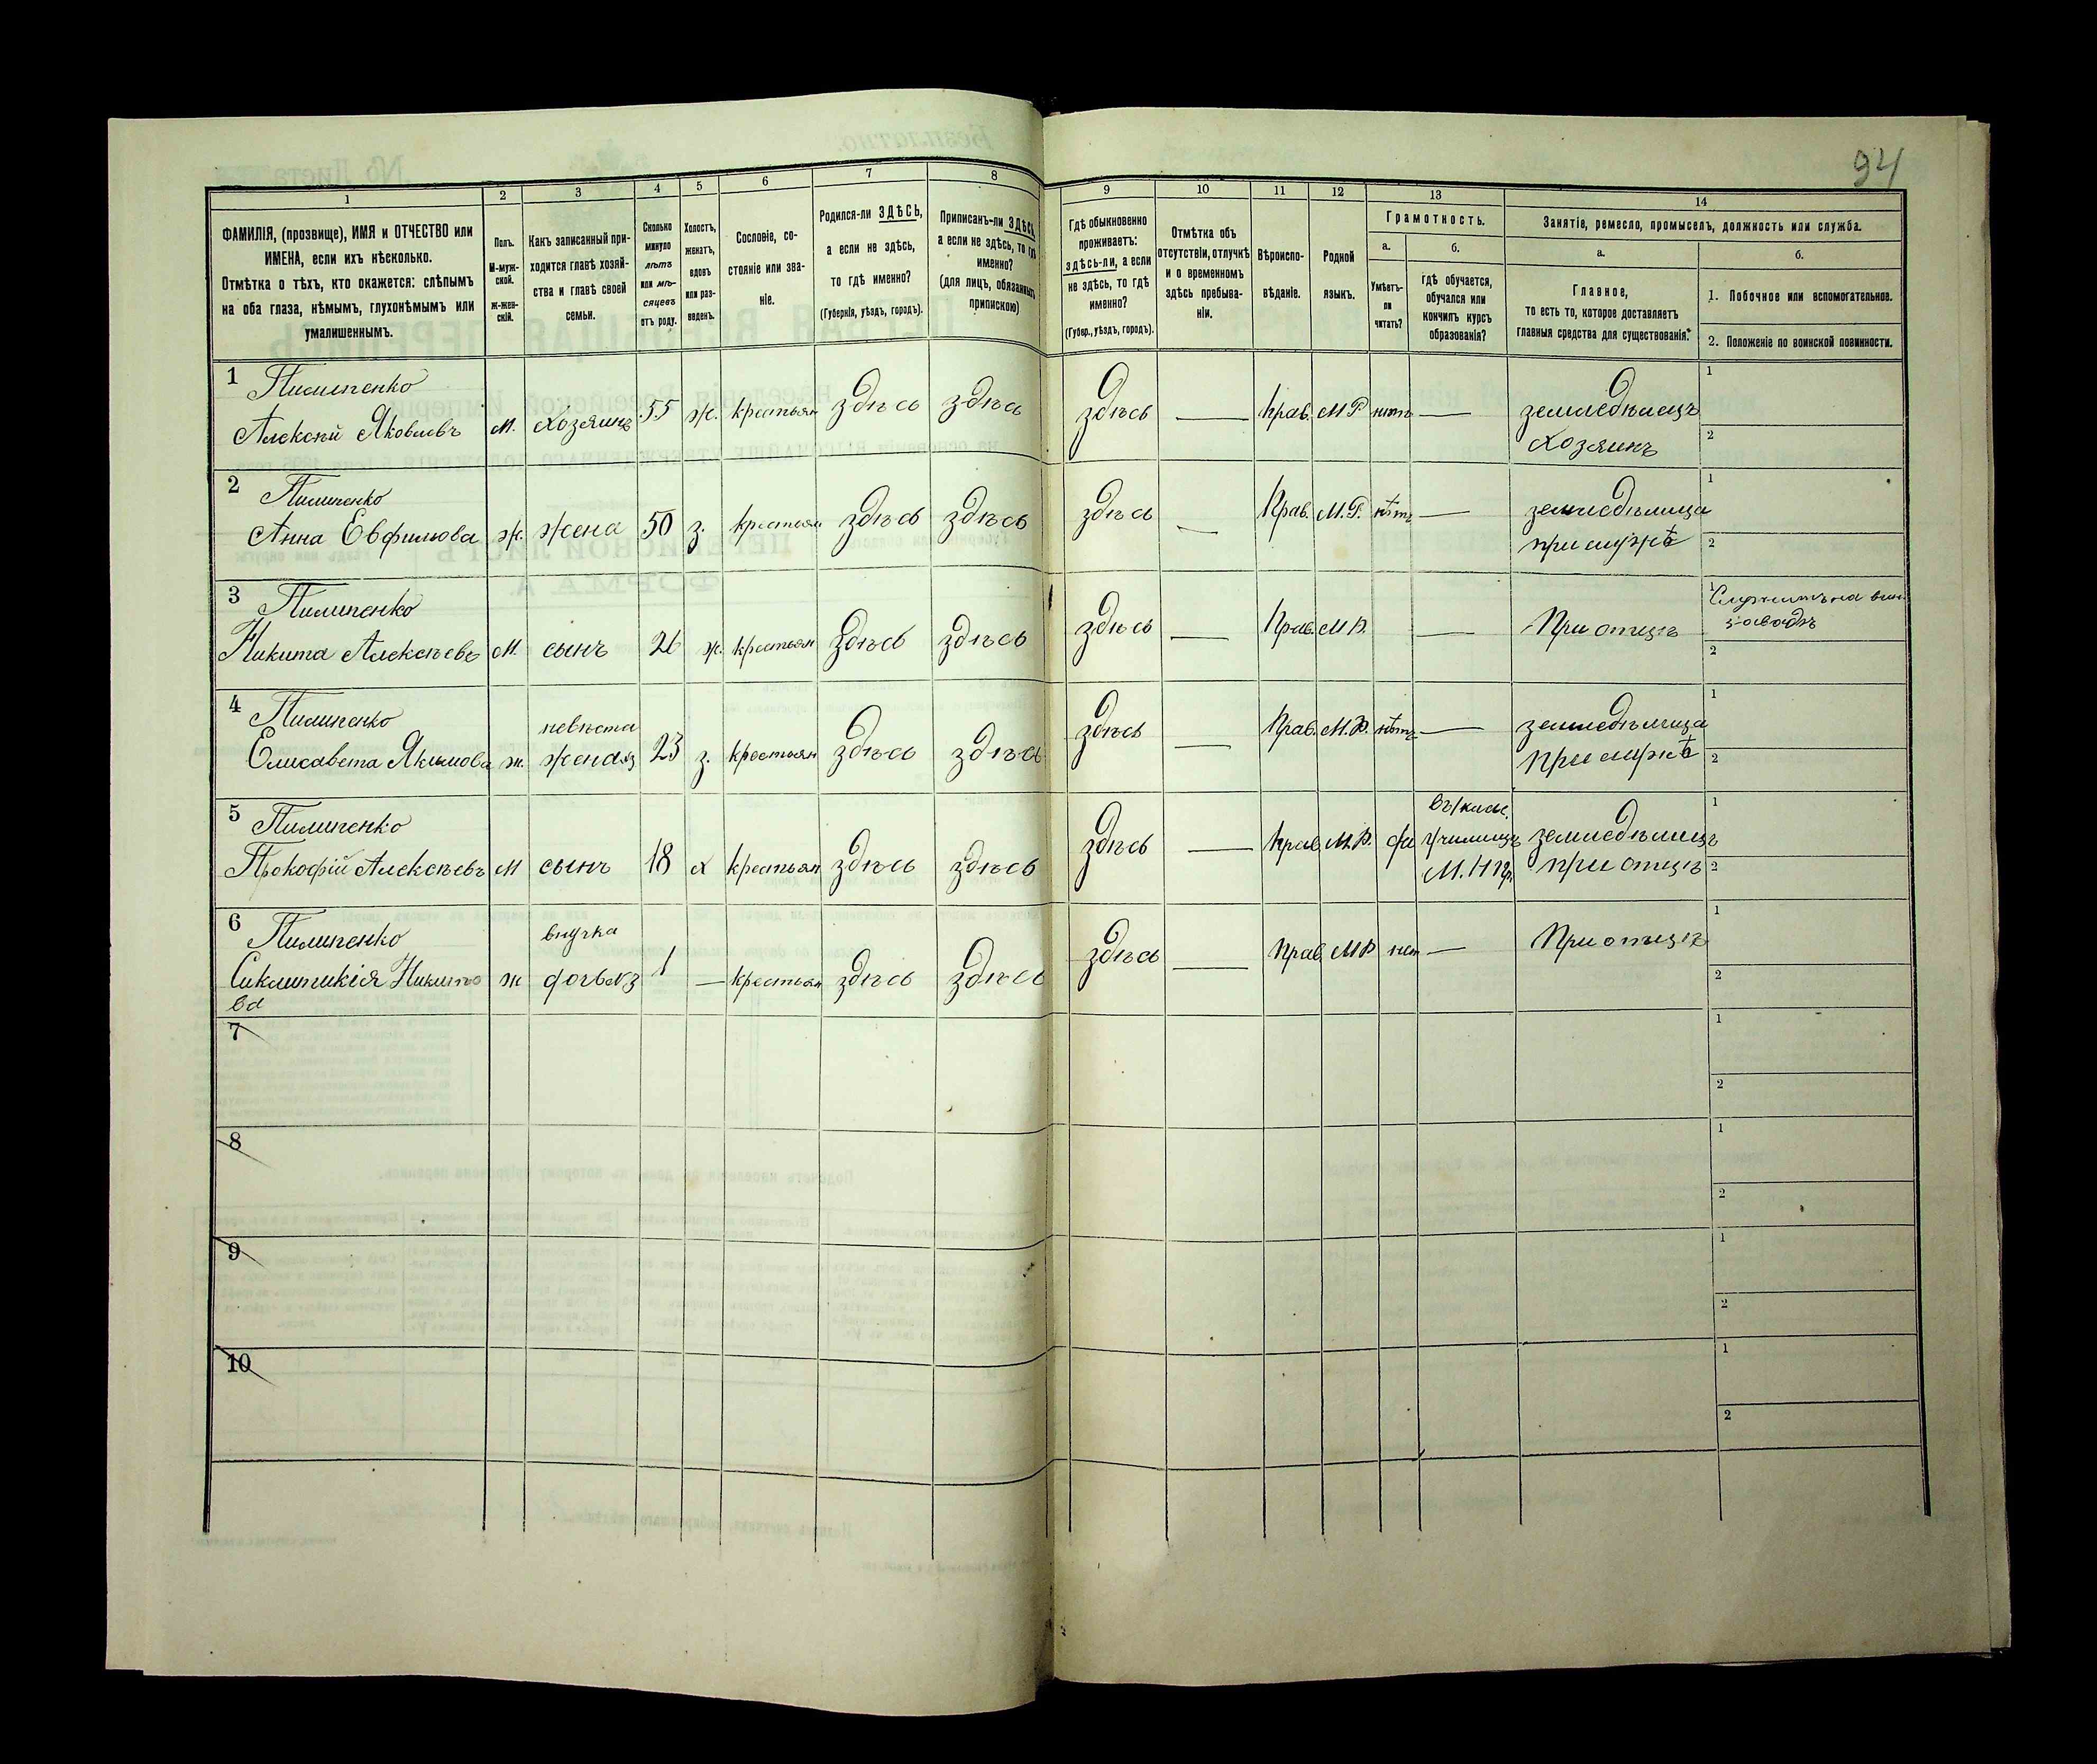 94
1
2
3
4
5
6
7
8
9
10
11
12
13
14
ФАМИЛІЯ, (прозвище), ИМЯ и ОТЧЕСТВО или
ИМЕНА, если ихъ нѣсколько.
Отмѣтка о тѣхъ, кто окажется: слѣпымъ
на оба глаза, нѣмымъ, глухонѣмымъ или
умалишеннымъ.
Полъ.
М-муж-
ской.
ж-жен-
скій.
Какъ записанный при-
ходится главѣ хозяй-
ства и главѣ своей
семьи.
Сколько
минуло
лѣтъ
или мѣ-
сяцевъ
отъ роду.
Холостъ,
женатъ,
вдовъ
или раз-
веденъ.
Сословіе, со-
стояніе или зва-
ніе.
Родился-ли ЗДѢСЬ,
а если не здѣсь,
то гдѣ именно?
(Губернія, уѣздъ, городъ).
Приписанъ-ли ЗДѢСЬ
а если не здѣсь, то гдѣ
именно?
(для лицъ, обязанныхъ
припискою)
Гдѣ обыкновенно
проживаетъ:
здѣсь-ли, а если
не здѣсь, то гдѣ
именно?
(Губер., уѣздъ, городъ).
Отмѣтка объ
отсутствіи, отлучкѣ
и о временномъ
здѣсь пребыва-
ніи.
Вѣроиспо-
вѣданіе.
Родной
языкъ.
Грамотность.
а.
Умѣетъ-
ли
читать?
б.
гдѣ обучается,
обучался или
кончилъ курсъ
образованія?
Занятіе, ремесло, промыселъ, должность или служба.
а.
Главное,
то есть то, которое доставляетъ
главныя средства для существованія.
б.
1. Побочное или вспомогательное.
2. Положеніе по воинской повинности.
1 Пилипенко
Алексѣй Яковлевъ м. хозяинъ 55 ж. крестьян здѣсь здѣсь здѣсь — Прав. М Р нѣтъ — земледѣлецъ 1
хозяинъ 2
2 Пилипенко
Анна Евфимова ж. жена 50 з. крестьян здѣсь здѣсь здѣсь — Прав. М.Р. нѣтъ — земледѣлица 1
при мужѣ 2
3 Пилипенко
Никита Алексѣевъ м. сынъ ж. крестьян здѣсь здѣсь здѣсь — Прав. М Р. — При отцѣ 1 Служитъ на вин.
заводѣ
2
4 Пилипенко невѣста
Елисавета Якимова ж. жена 23 з. крестьян здѣсь здѣсь здѣсь — Прав. М.Р. нѣтъ — земледѣлица 1
При мужѣ 2
5 Пилипенко
Прокофій Алексѣевъ м сынъ 18 х крестьян здѣсь здѣсь здѣсь — Прав. М.Р. да училищѣ земледѣлецъ 1
при отцѣ 2
6 Пилипенко внучка
Сиклитикія Никито ж дочь 1 — крестьян здѣсь здѣсь здѣсь — Прав. М Р нет — При отцѣ 1
ва 2
7 1
2
8 1
2
9 1
2
10 1
2